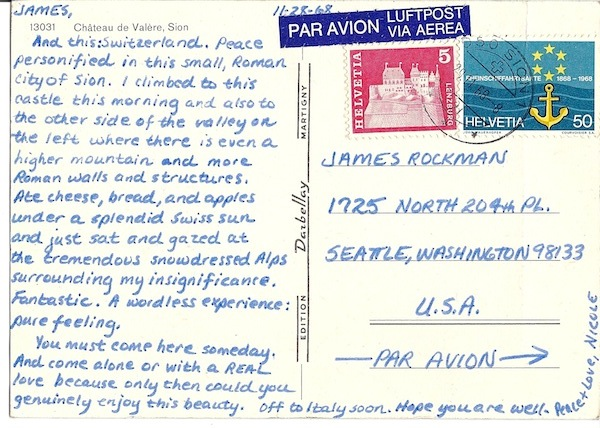 JAMES,
11-28-68
13031 Château de Valère, Sion
And this: Switzerland. Peace
personified in this small, Roman
city of Sion. I climbed to this
castle this morning and also to
the other side of the valley on
the left where there is even a
higher mountain and more
Roman walls and structures.
Ate cheese, bread, and apples
under a splendid Swiss sun
and just sat and gazed at
the tremendous snowdressed Alps
surrounding my insignificance.
Fantastic. A wordless experience:
pure feeling.
You must come here someday.
And come alone or with a REAL
love because only then could you
genuinely enjoy this beauty. off to Italy soon. Hope you are well. Peace + Love, NICOLE
EDITION Darbellay MARTIGNY
PAR AVION LUFTPOST
VIA AEREA
HELVETIA
5
LENZBURG
RHEINSCHIFFAHRT 1668-1968
HELVETIA 50
SION
JAMES ROCKMAN
1725 NORTH 204th PL.
SEATTLE, WASHINGTON 98133
U.S.A.
— PAR AVION →